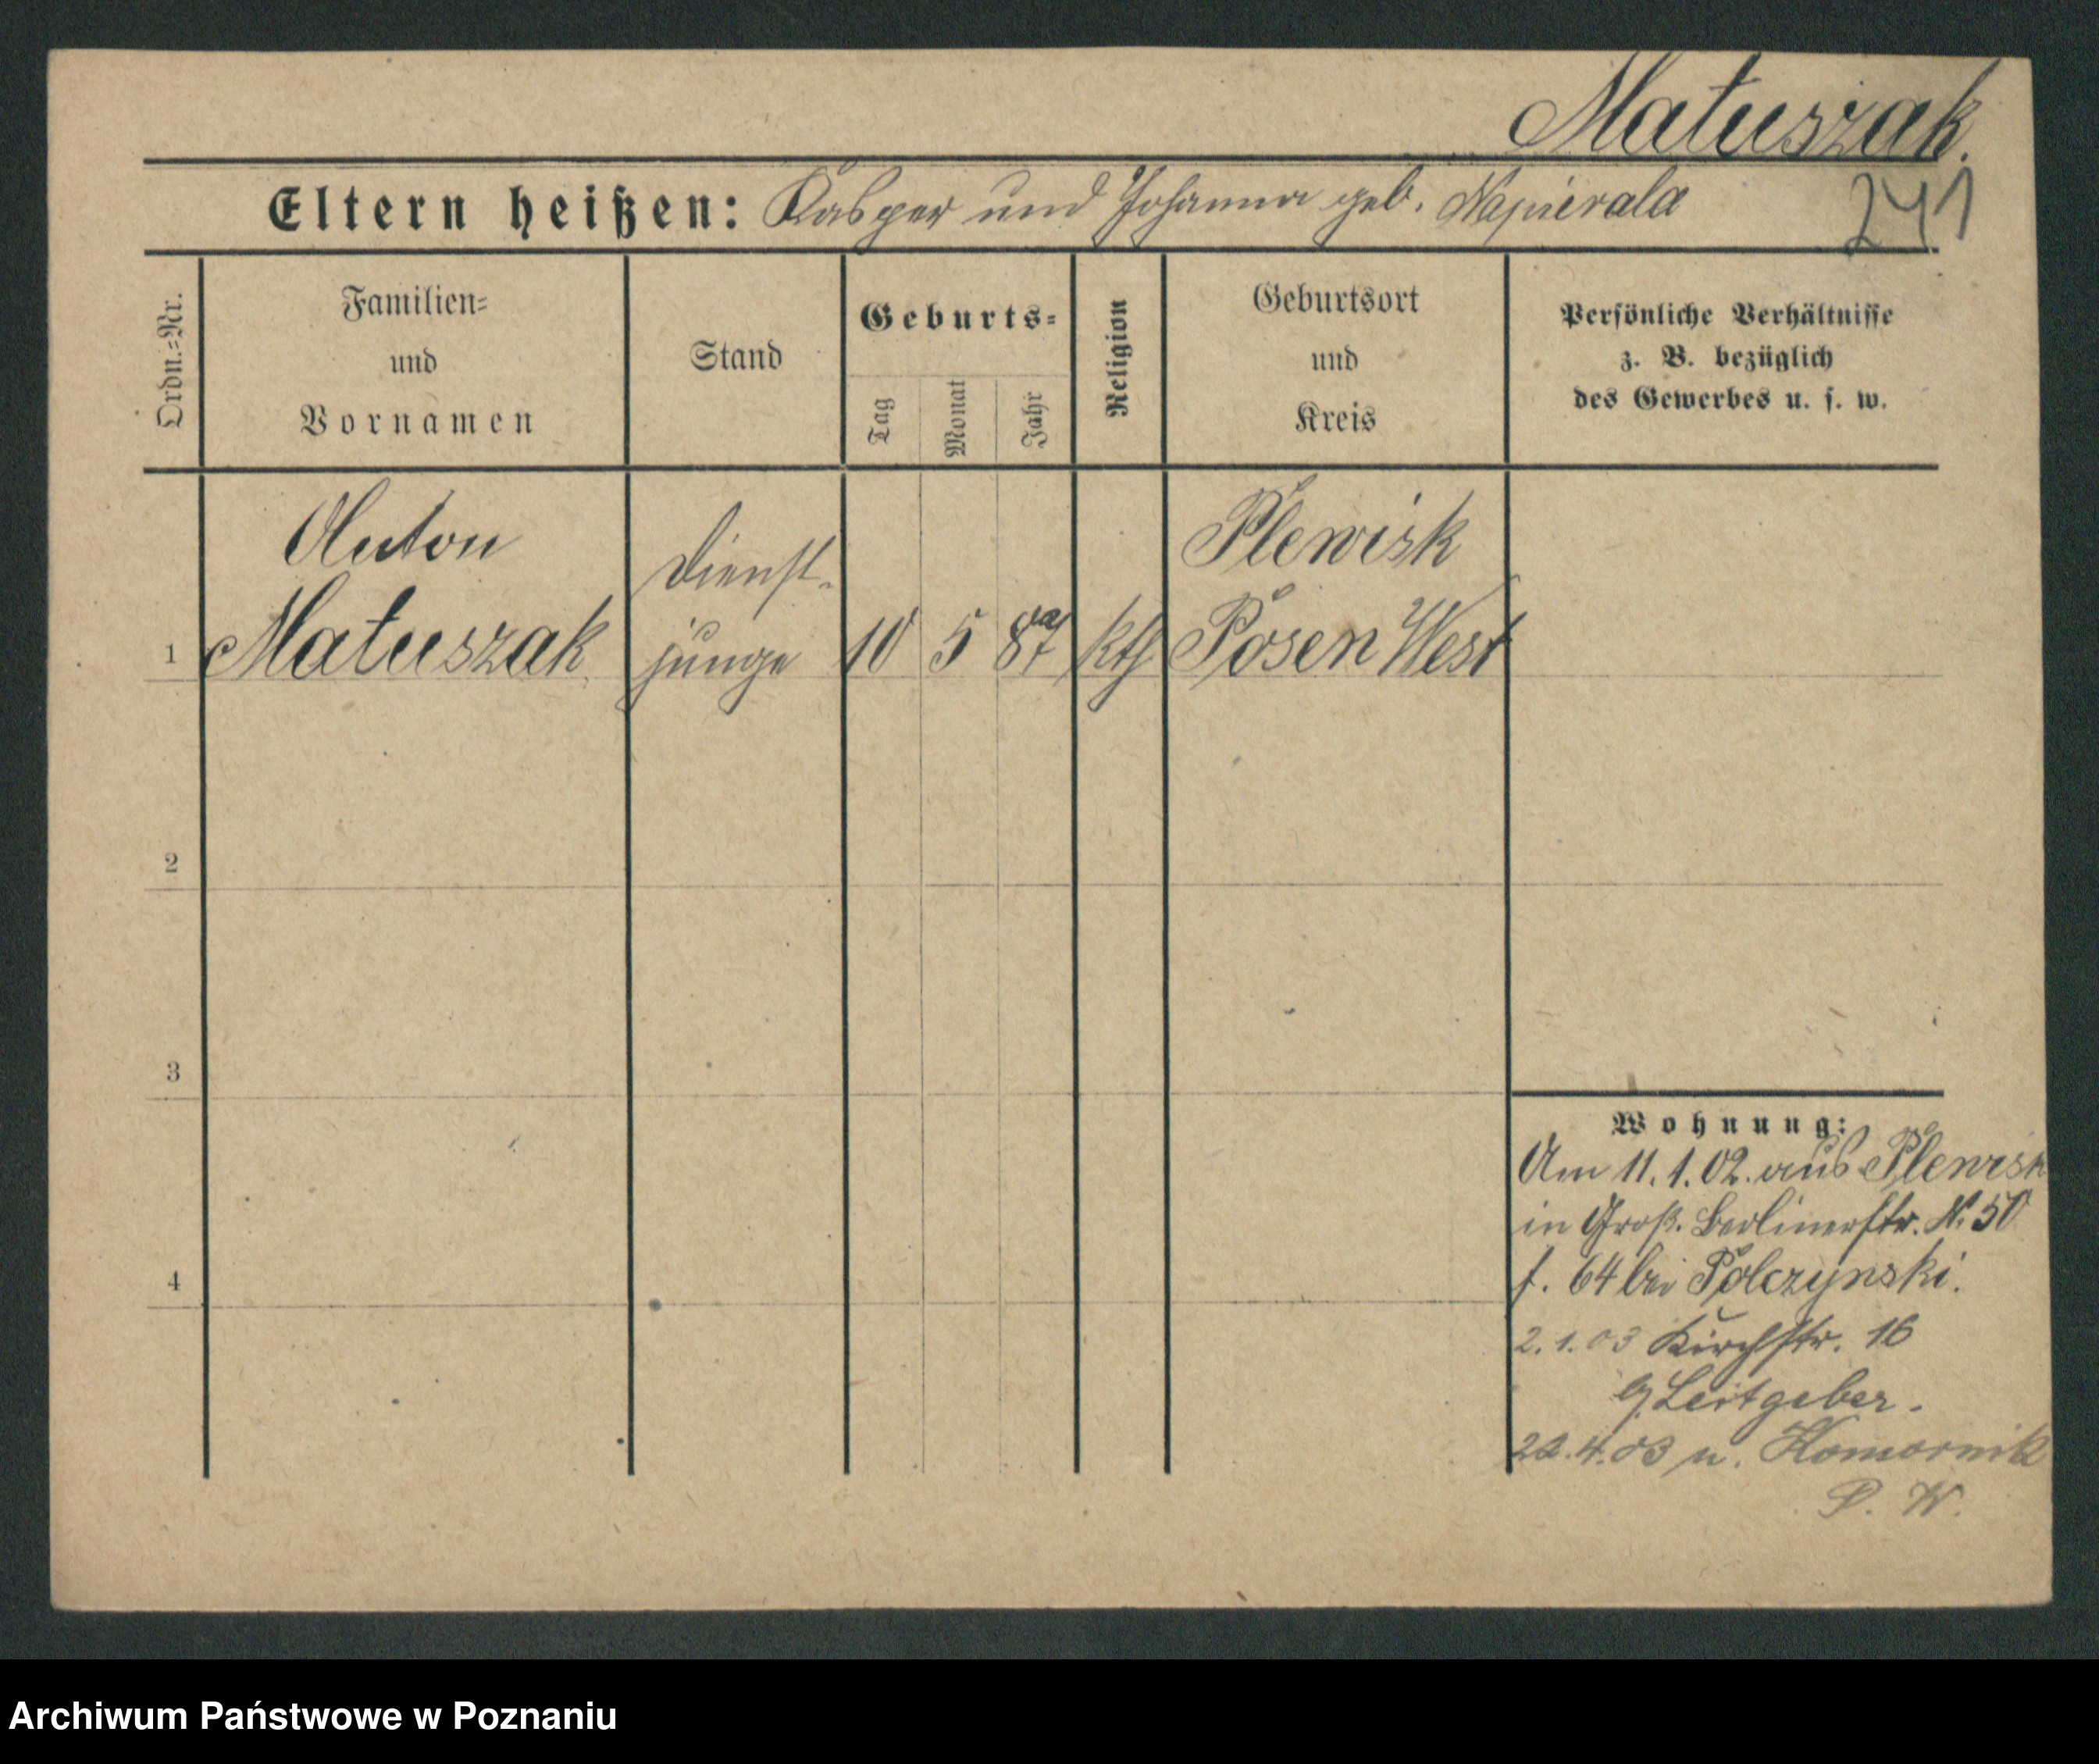 Matuszak.
Eltern heißen: Kasper und Johanna geb. Napierala
241
Ordn.=Nr.
Familien=
und
Vornamen
Stand
Geburts=
Tag
Monat
Jahr
Religion
Geburtsort
und
Kreis
Persönliche Verhältnisse
z. B. bezüglich
des Gewerbes u. s. w.
Anton
Matuszak
Dienst-
junge
10 5 87 kth
Plewisk
Posen West
1
2
3
4
Wohnung:
Am 11.1.02. aus Plewisk
in Groß. Berlinerstr. N. 50
f. 64 bei Polczynski.
2.1.03 Kirchstr. 16
b/ Leitgeber.
22.4.03 n. Komornik
P. W.
Archiwum Państwowe w Poznaniu